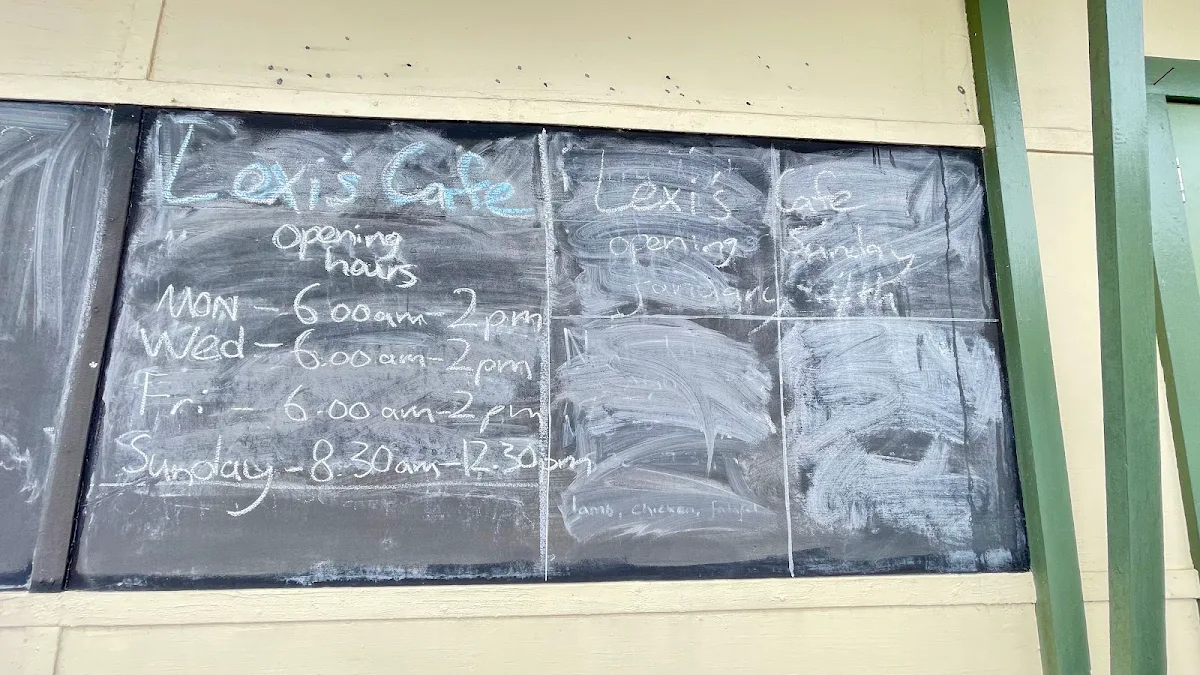 Lexi's Cafe
opening
hours
MON - 6 00am 2pm
Wed - 6.00am-2pm
Fri - 6.00am-2pm
Sunday - 8.30am-12.30pm
Lexi's Cafe
opening Sunday
4th
lamb, chicken, falafel